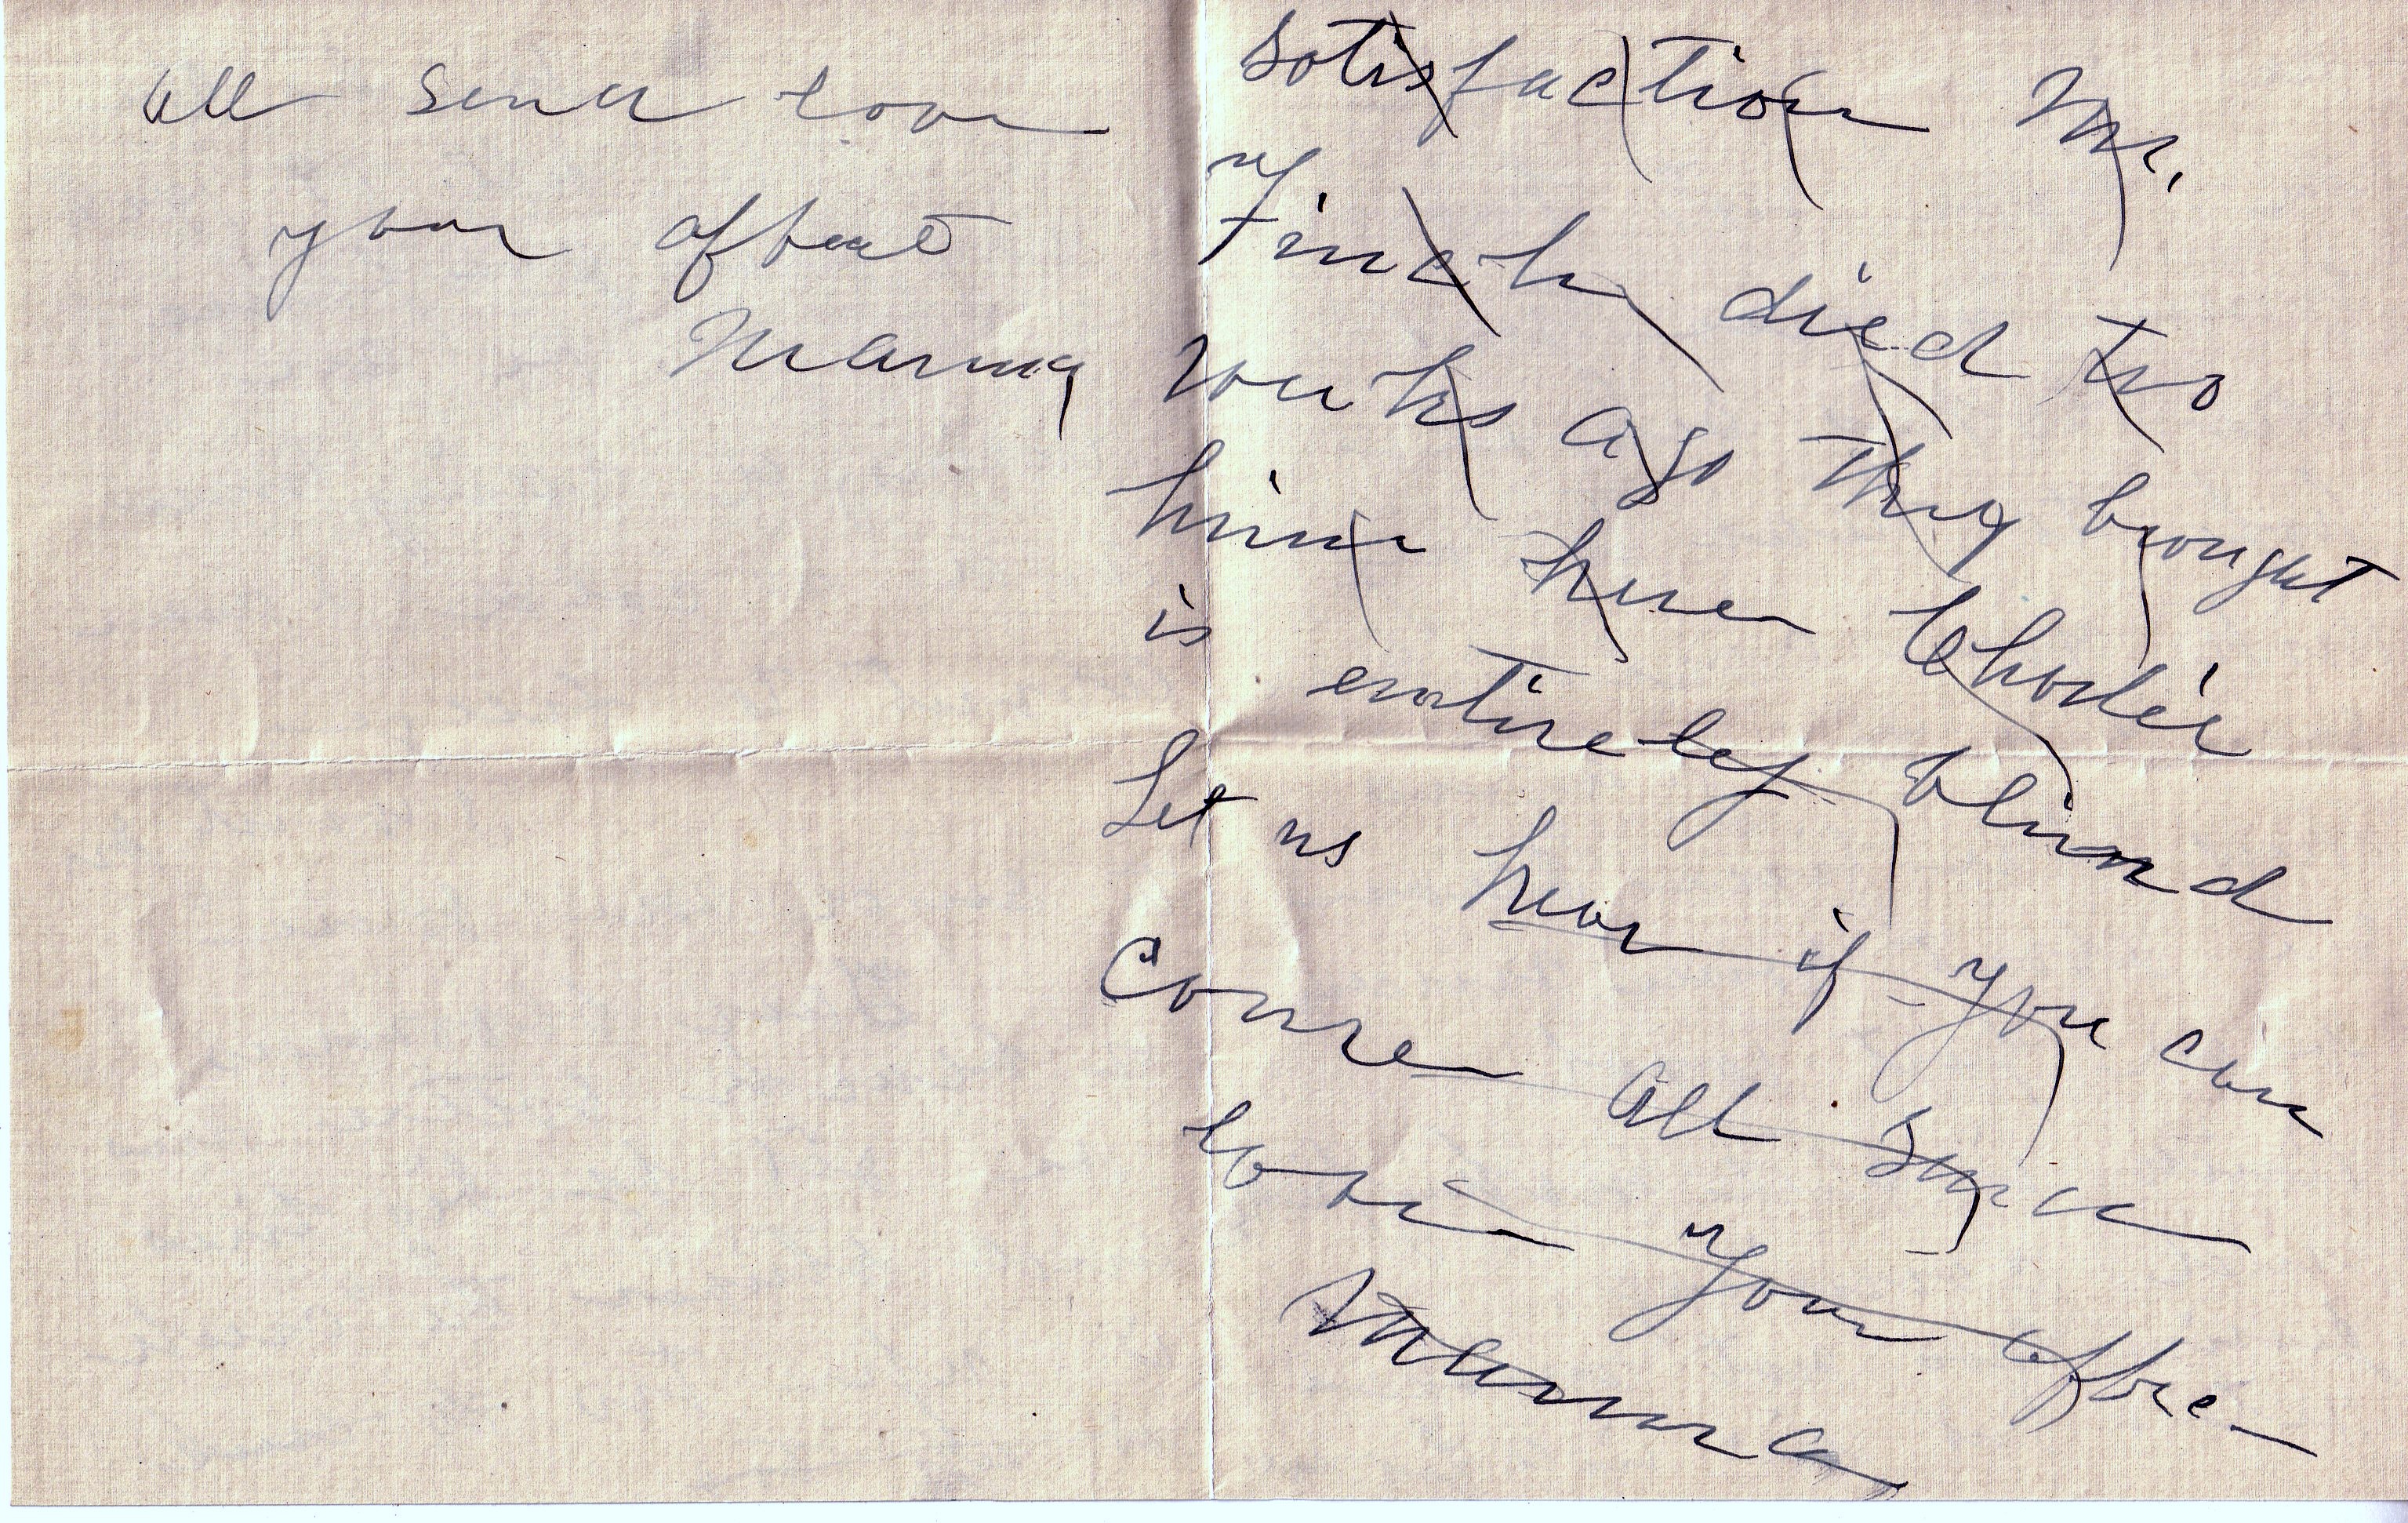 all send love
your affect
Mama
satisfaction Mr.
Finch died two
weeks ago they brought
him here Chodie
is entirely blind
Let us hear if you can
come all send
love your affec-
Mama